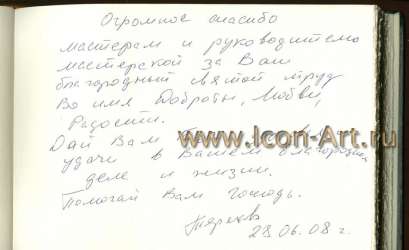 Огромное спасибо
мастерам и руководителю
мастерской за Ваш
благородный святой труд
Во имя Доброты, Любви,
Радости.
Дай Вам
www.Icon-Art.ru
удачи в Вашем благородном
деле и жизни.
Помогай Вам Господь.
28.06.08 г.